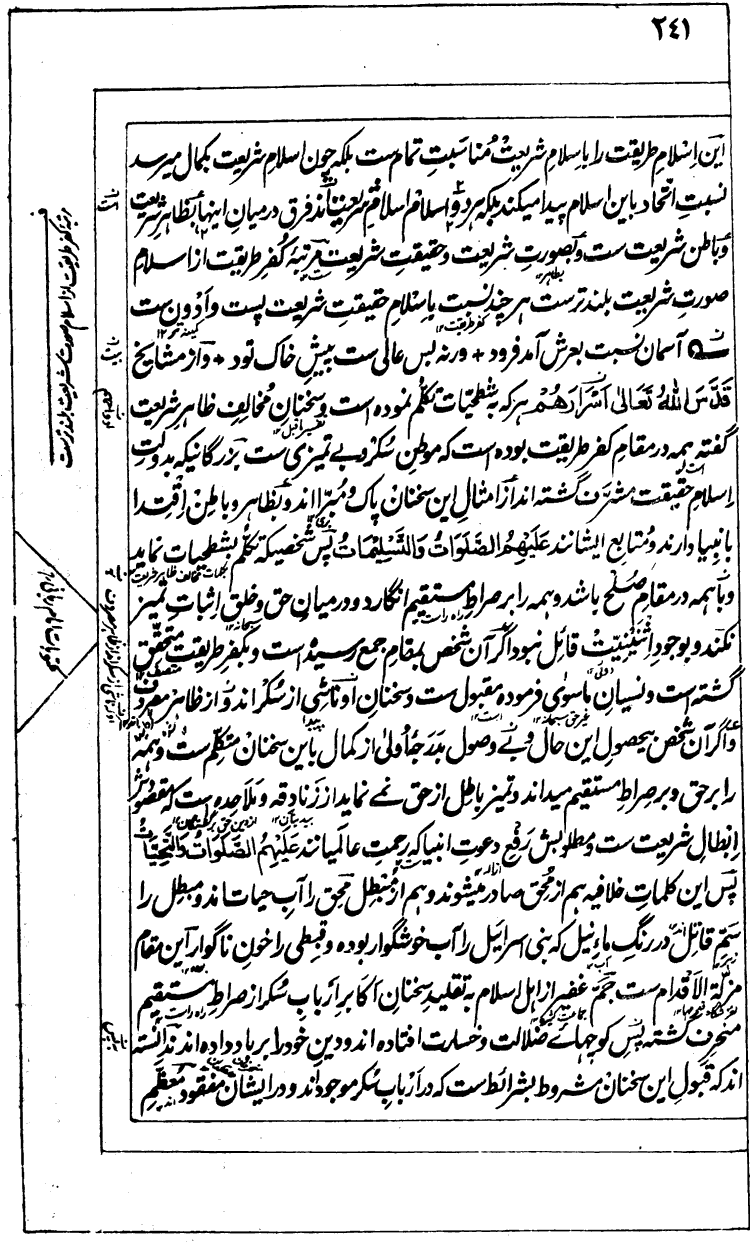 ٢٤١
این اسلام طریقت را باسلام شریعت مناسبت تمام ست بلکه چون اسلام شریعت بکمال میرسد
نسبت اتحاد باین اسلام پیدا میکند بلکه هر دو اسلام اسلام شریعت اند فرق درمیان اینها بظاهر شریعت
و باطن شریعت ست و بصورت شریعت و حقیقت شریعت مرتبهٔ کفر طریقت از اسلام
صورت شریعت بلندترست هرچند نسبت باسلام حقیقت شریعت پست و ادون ست
آسمان نسبت بعرش آمد فرود + ورنه بس عالی ست پیش خاک تود + و از مشایخ
قَدَّسَ اللهُ تَعَالیٰ اَسْرَارَهُمْ هرکه به شطحیات تکلم نموده است و سخنان مخالف ظاهر شریعت
گفته همه در مقام کفر طریقت بوده است که موطن سکر و بے تمیزی ست بزرگانیکه بدولت
اسلام حقیقت مشرف گشته اند از امثال این سخنان پاک و مبرا اند و بظاهر و باطن اقتدا
بانبیا دارند و متابع ایشانند عَلَیْهِمُ الصَّلَوَاتُ وَالتَّسْلِیْمَاتُ پس شخصیکه تکلم بشطحیات نماید
و باهمه در مقام صلح باشد و همه را بر صراط مستقیم انگارد و درمیان حق و خلق اثبات تمیز
نکند و بوجود اثنینیت قائل نبود اگر آن شخص بمقام جمع رسیده است و بکفر طریقت متحقق
گشته است و نسیان ماسوی فرموده مقبول ست و سخنان او ناشی از سکر اند و از ظاهر مصروف
و اگر آن شخص بیحصول این حال و بے وصول بدرجهٔ اولیٰ از کمال باین سخنان متکلم ست و همه
را بر حق و بر صراط مستقیم میداند و تمیز باطل از حق نمے نماید از زنادقه و ملاحده ست که مقصودش
ابطال شریعت ست و مطلوبش رفع دعوت انبیا که رحمت عالمیانند عَلَیْهِمُ الصَّلَوَاتُ وَالتَّحِیَّاتُ
پس این کلمات خلافیه هم از محق صادر میشوند و هم از مبطل محق را آب حیات اند و مبطل را
سمّ قاتل در رنگ ماء نیل که بنی اسرائیل را آب خوشگوار بوده و قبطی را خون ناگوار این مقام
مزلّة الاقدام ست جمّ غفیر از اهل اسلام به تقلید سخنان اکابر ارباب سکر از صراط مستقیم
منحرف گشته پس کوچهائے ضلالت و خسارت افتاده اند و دین خود را برباد داده اند ندانسته
اند که قبول این سخنان مشروط بشرائط ست که در ارباب سکر موجوداند و در ایشان مفقود معظم
مرتبهٔ کفر طریقت از اسلام صورت شریعت بلندترست